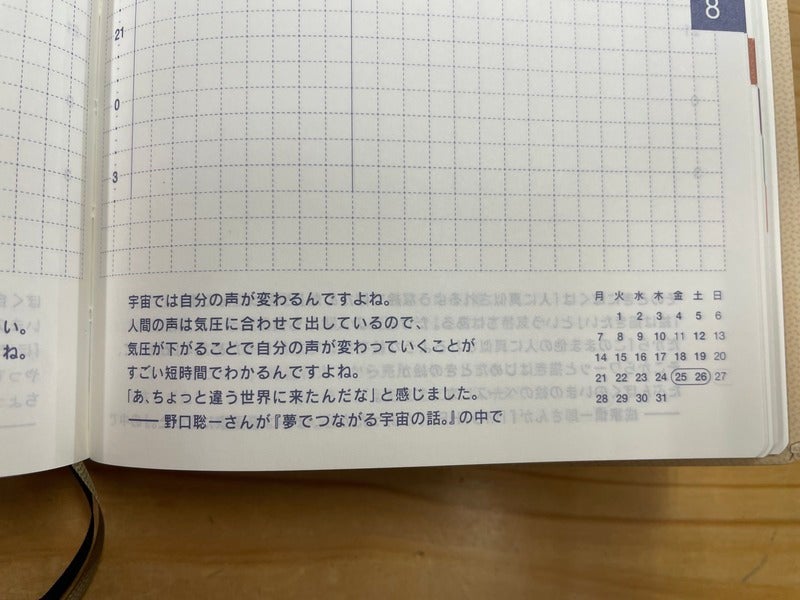 8
21
0
3
い。
ね。
宇宙では自分の声が変わるんですよね。
人間の声は気圧に合わせて出しているので、
気圧が下がることで自分の声が変わっていくことが
すごい短時間でわかるんですよね。
「あ、ちょっと違う世界に来たんだな」と感じました。
―― 野口聡一さんが『夢でつながる宇宙の話。』の中で
月 火 水 木 金 土 日
1 2 3 4 5 6
7 8 9 10 11 12 13
14 15 16 17 18 19 20
21 22 23 24 25 26 27
28 29 30 31